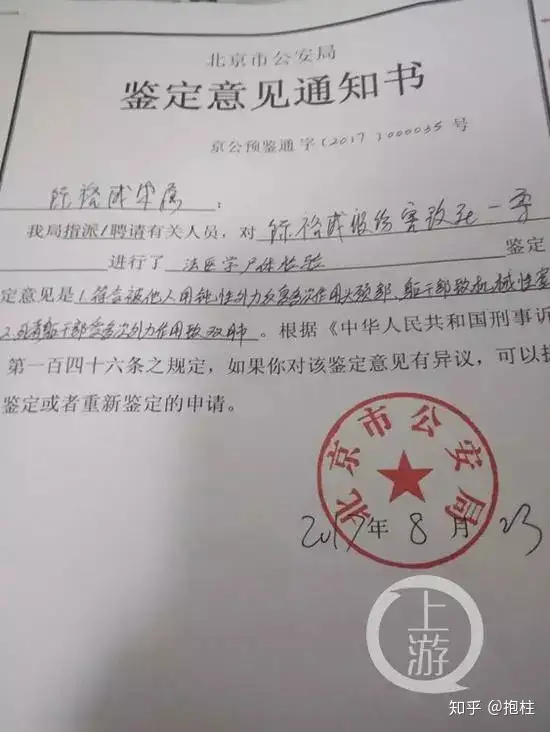 北京市公安局
鉴定意见通知书
京公预鉴通字(2017)000035号
陈裕咸家属:
我局指派/聘请有关人员,对 陈裕咸被伤害致死一案
进行了 法医学尸体检验 鉴定
定意见是1.符合被他人用钝性外力反复多次作用头颈部、躯干部致机械性窒
2.死者躯干部受多次外力作用致双肺 。根据《中华人民共和国刑事诉
第一百四十六条之规定,如果你对该鉴定意见有异议,可以提
鉴定或者重新鉴定的申请。
北京市公安局
2017年8月23
上游
知乎 @抱柱